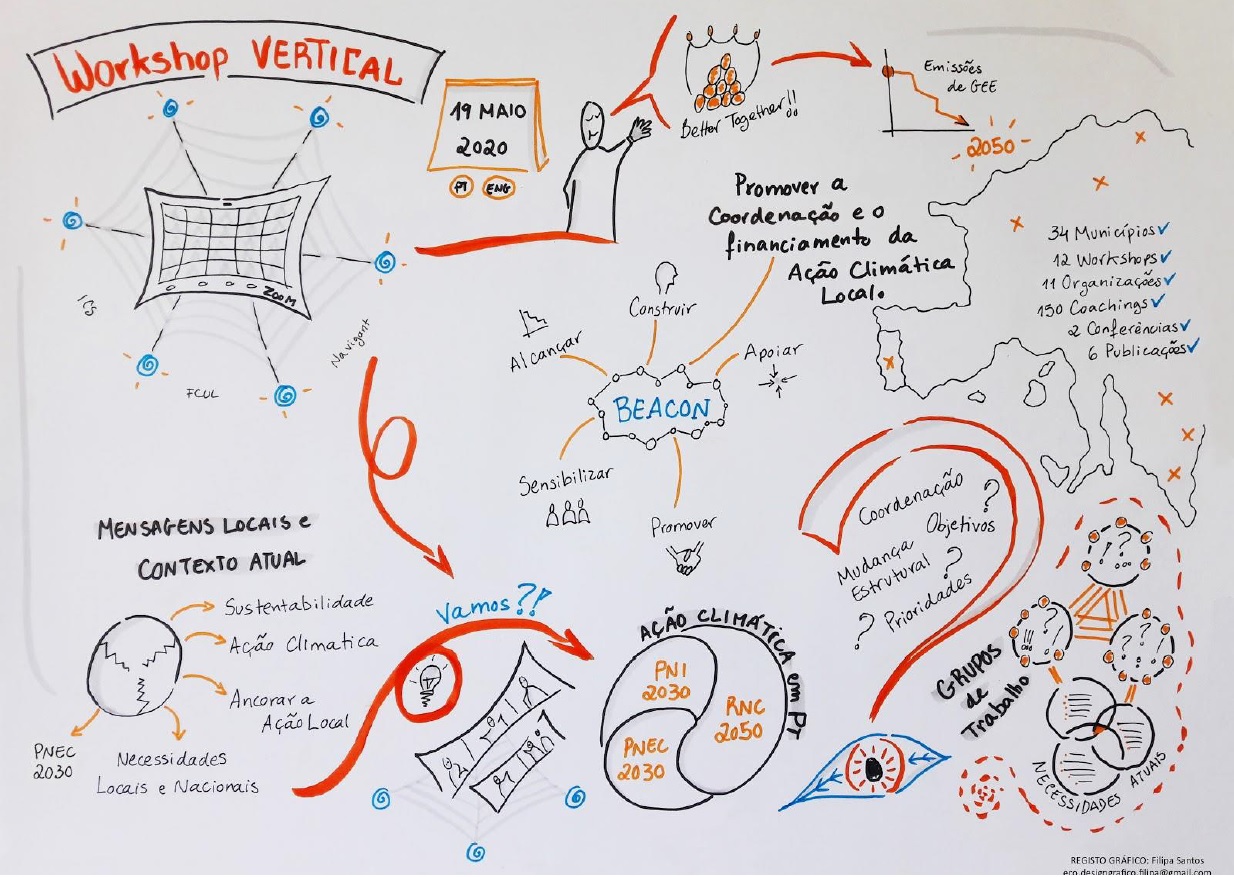 Workshop VERTICAL
19 MAIO
2020
PT
ENG
Better Together!!
Emissões
de GEE
2050
Promover a
Coordenação e o
financiamento da
Ação Climática
Local.
34 Municípios
12 Workshops
11 Organizações
150 Coachings
2 Conferências
6 Publicações
ZOOM
ICS
Navigant
FCUL
Construir
Alcançar
Apoiar
BEACON
Sensibilizar
Promover
MENSAGENS LOCAIS e
CONTEXTO ATUAL
Sustentabilidade
Ação Climatica
Ancorar a
Ação Local
PNEC
2030
Necessidades
Locais e Nacionais
Vamos?!
AÇÃO CLIMÁTICA em PT
PNI
2030
RNC
2050
PNEC
2030
Coordenação ?
Objetivos
Mudança
Estrutural ?
? Prioridades
GRUPOS
de
Trabalho
? ? ...
!!! ?
? ? ?
NECESSIDADES ATUAIS
REGISTO GRÁFICO: Filipa Santos
eco.designgrafico.filipa@gmail.com